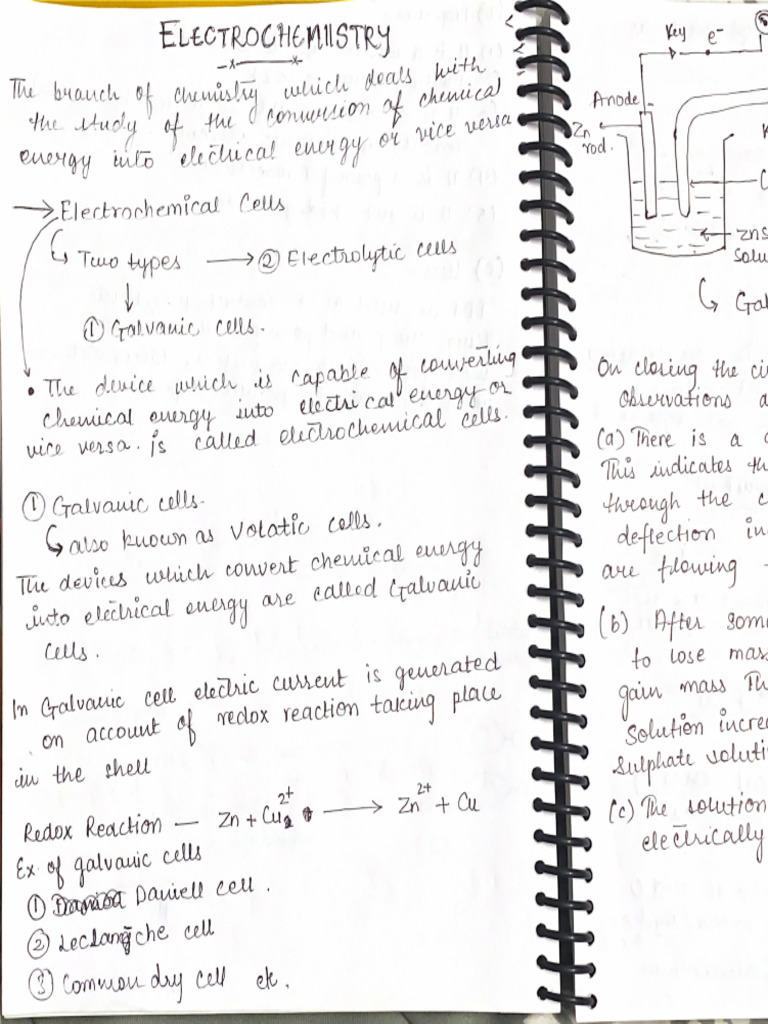 ELECTROCHEMIISTRY
The branch of chemistry which deals with
the study of the conversion of chemical
energy into electrical energy or vice versa
→ Electrochemical Cells
↳ Two types → ② Electrolytic cells
↓
① Galvanic cells.
• The device which is capable of converting
chemical energy into electrical energy or
vice versa. is called electrochemical cells.
① Galvanic cells.
↳ also known as Volatic cells.
The devices which convert chemical energy
into electrical energy are called Galvanic
cells.
In Galvanic cell electric current is generated
on account of redox reaction taking place
in the shell
Redox Reaction — Zn + Cu²⁺ → Zn²⁺ + Cu
Ex of galvanic cells
① Daniell cell.
② Leclangche cell
③ Common dry cell etc.
Key e⁻
Anode
Zn
rod.
ZnS
Solu
↳ Gal
On closing the ci
observations a
(a) There is a
This indicates th
through the c
deflection in
are flowing
(b) After som
to lose mas
gain mass Th
Solution increa
Sulphate soluti
(c) The solution
electrically